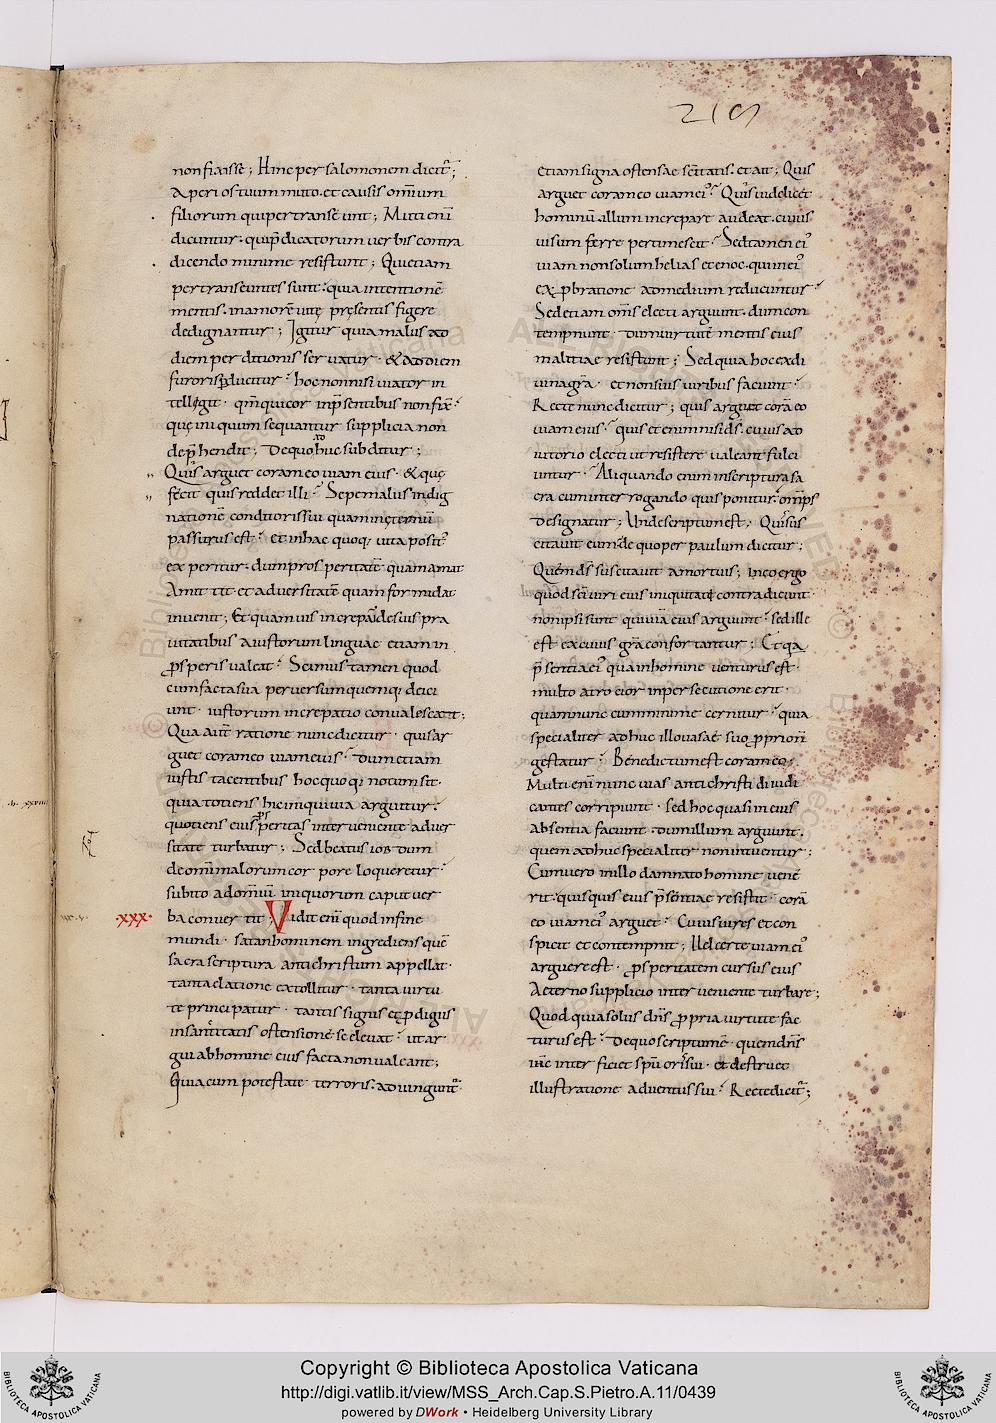 219
non fixisse; Hinc per salomonem dicit̄;
Aperi os tuum muto. et causis omnium
filiorum qui pertranseunt; Muti enī
dicuntur. qui p̄dicatorum verbis contra
dicendo minime resistunt; Qui etiam
pertranseuntes sunt. quia intentionē
mentis. in amorē vitę pręsentis figere
dedignantur; Igitur quia malus ad
diem perditionis servatur. & ad diem
furoris ducitur. hoc non nisi viator in
tellegit. qm̄ qui cor in p̄sentibus non fixit.
quę iniquum sequantur supplicia non
dep̄hendit; De quo adhuc subditur;
Quis arguet coram eo viam eius. & quę
fecit quis reddet illi. Sepe malus indig
nationē conditoris sui quam in ęternū
passurus est. et in hac quoq; vita posit'
experitur. dum prosperitatē quam amat
Amittit. et adversitatē quam formidat
invenit; Et quamvis increpandesius pra
vitatibus a iustorum linguae etiam in
ꝓsperis valeat. Scimus tamen quod
cum facta sua perversum quemq; deici
unt. iustorum increpatio convalescat;
Qua aut̄ ratione nunc dicitur. quis ar
guet coram eo viam eius. dum etiam
iustis tacentibus hoc quoq; notum sit.
quia totiens hic iniquus arguitur.
quotiens eius ꝓsperitas interveniente adver
sitate turbatur; Sed beatus iob dum
de omī malorum corpore loqueretur.
subito ad omniū iniquorum caput ver
·xxx· ba convertit; Vidit enī quod in fine
mundi. satan hominem ingrediens quē
sacra scriptura antichristum appellat.
tanta elatione extollitur. tanta virtu
te principatur. tantis signis et ꝓdigiis
in sanctitatis ostensionē se elevat. ut ar
gui ab homine eius facta non valeant;
Quia cum potestate terroris. adiungunt̄
etiam signa ostensae sc̄itatis. et ait; Quis
arguet coram eo viam ei'. Quis videlicet
hominū illum increpare audeat. cuius
visum ferre pertimescit. Sed tamen ei'
viam non solum helias et enoc. qui in ei'
exprobratione ad medium reducuntur.
Sed etiam omnis electi arguunt. dum con
tempnunt. dum virtute mentis eius
malitiae resistunt; Sed quia hoc ex di
vina gr̄a. et non suis viribus faciunt.
Recte nunc dicitur; quis arguet corā eo
viam eius. quis etenim nisi d̄s. cuius ad
iutorio electi ut resistere valeant fulci
untur. Aliquando enim in scriptura sa
cra cum interrogando quis ponitur. om̄ps
designatur; Unde scriptum est; Quis sus
citavit eum. de quo per paulum dicitur;
Quem d̄s suscitavit a mortuis; In eo ergo
quod sc̄i viri eius iniquitati contradicunt.
non ipsi sunt qui viā eius arguunt. sed ille
est ex cuius gr̄a confortantur; Et qa
p̄sentia ei' qua in homine venturus est.
multo atrocior in persecutione erit.
quam nunc cum minime cernitur. quia
specialiter adhuc illo vasae suo ꝓprio nō
gestatur. Bene dictum est coram eo.
Multi enī nunc vias antichristi diiudi
cantes corripiunt. sed hoc quasi in eius
absentia faciunt. dum illum arguunt.
quem adhuc specialiter non intuentur;
Cum vero in illo damnato homine vene
rit. quisquis eius p̄sentiae resistit. corā
eo viam ei' arguet. Cuius vires et con
spicit et contempnit; Vel certe viam ei'
arguere est. ꝓsperitatem cursus eius
Aeterno supplicio interveniente turbare;
Quod quia solus dn̄s ꝓpria virtute fac
turus est. de quo scriptum ē. quem dn̄s
ih̄c interficiet spū oris sui. et destruet
illustratione adventus sui. Recte dicit̄;
Copyright © Biblioteca Apostolica Vaticana
http://digi.vatlib.it/view/MSS_Arch.Cap.S.Pietro.A.11/0439
powered by DWork • Heidelberg University Library